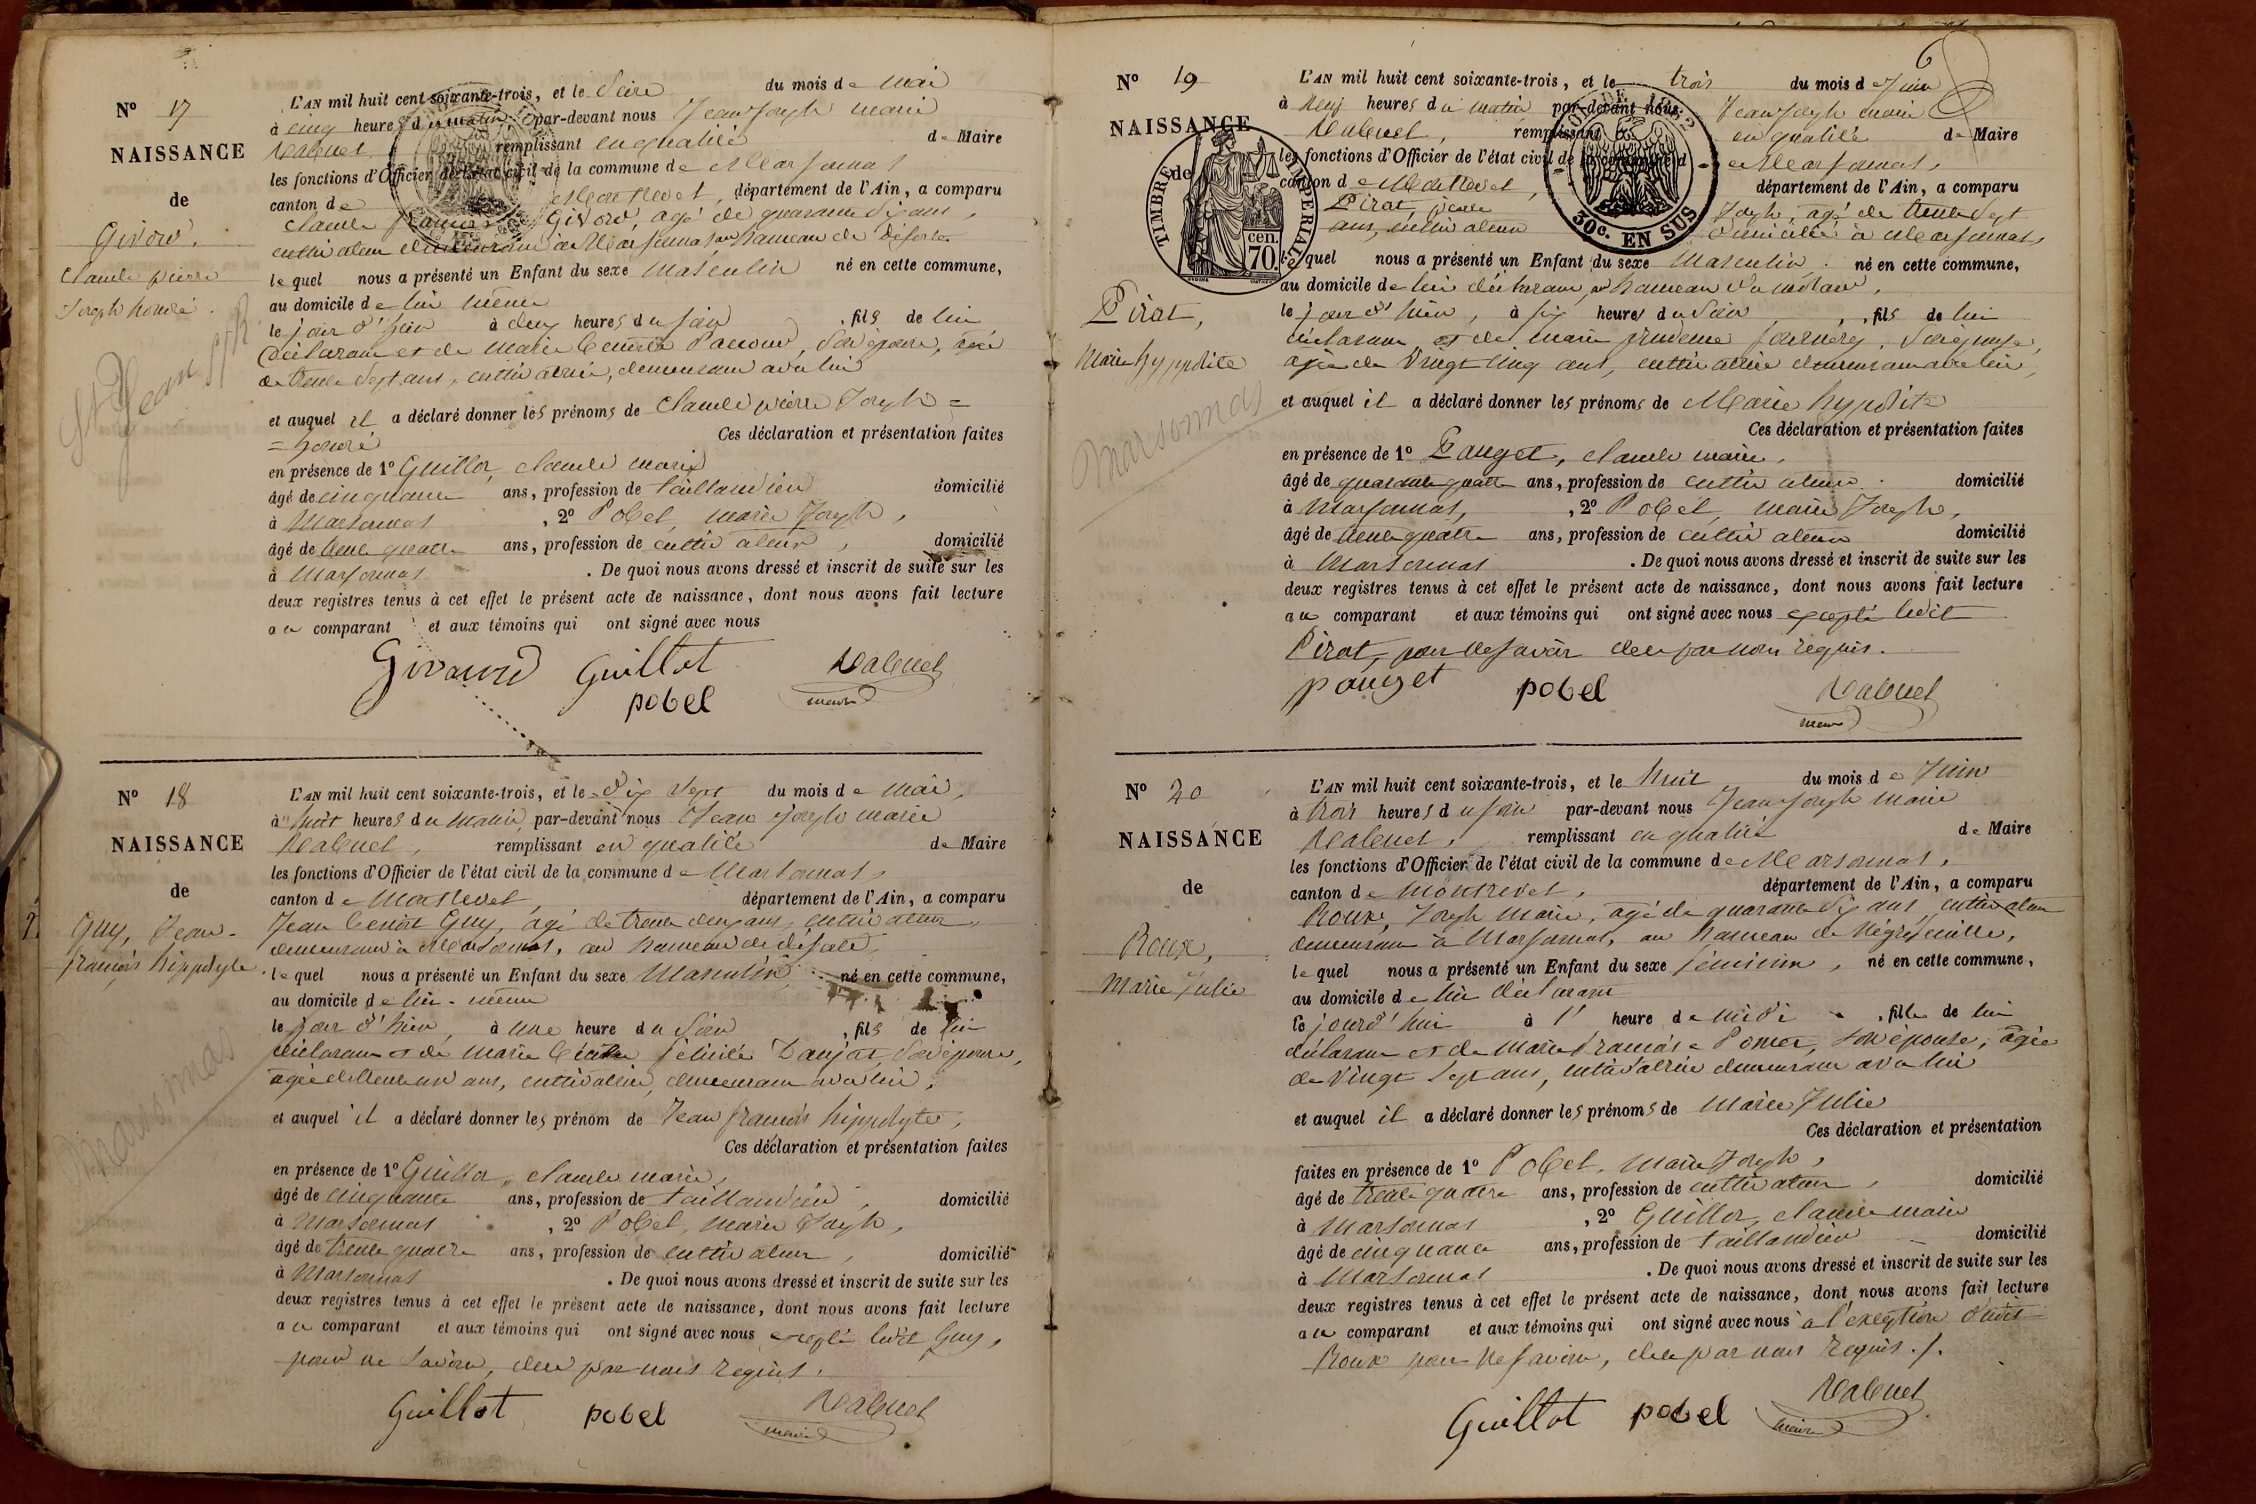 N° 17
NAISSANCE
de
Givord,
Claude pierre
Joseph honoré.
St Jean s/R
L'AN mil huit cent soixante-trois, et le Seize du mois de Mai
à cinq heures du matin, par-devant nous Jean Joseph marie
remplissant en qualité de Maire
les fonctions d'Officier de l'état civil de la commune de Marsonnas
canton de Montrevel, département de l'Ain, a comparu
Claude Givord, agé de quarante six ans,
cultivateur demeurant à Marsonnas au hameau de
le quel nous a présenté un Enfant du sexe Masculin né en cette commune,
au domicile de lui même
le jour d'hier à deux heures du soir, fils de lui
déclarant et de Marie Son épouse, agée
de trente Sept ans, cultivatrice, demeurant avec lui
et auquel il a déclaré donner les prénoms de Claude pierre Joseph =
= honoré Ces déclaration et présentation faites
en présence de 1° Guillot, claude marie
âgé de cinquante ans, profession de taillandier domicilié
à Marsonnas, 2° Pobel, marie Joseph,
âgé de trente quatre ans, profession de cultivateur, domicilié
à Marsonnas. De quoi nous avons dressé et inscrit de suite sur les
deux registres tenus à cet effet le présent acte de naissance, dont nous avons fait lecture
au comparant et aux témoins qui ont signé avec nous
Givord Guillot
pobel
maire
N° 18
NAISSANCE
de
Guy, Jean-
françois hippolyte
Marsonnas
L'AN mil huit cent soixante-trois, et le dix Sept du mois de Mai,
à huit heures du Matin, par-devant nous Jean joseph marie
remplissant en qualité de Maire
les fonctions d'Officier de l'état civil de la commune de Marsonnas,
canton de Montrevel, département de l'Ain, a comparu
Jean Benoît Guy, agé de trente deux ans, cultivateur,
demeurant à Marsonnas, au hameau de
le quel nous a présenté un Enfant du sexe Masculin, né en cette commune,
au domicile de lui-même
le jour d'hier, à une heure du Soir, fils de lui
déclarant et de Marie félicité Son épouse,
agée de trente un ans, cultivatrice, demeurant avec lui,
et auquel il a déclaré donner les prénom de Jean françois hippolyte,
Ces déclaration et présentation faites
en présence de 1° Guillot, claude marie,
âgé de cinquante ans, profession de taillandier, domicilié
à Marsonnas, 2° Pobel, marie Joseph,
âgé de trente quatre ans, profession de cultivateur, domicilié
à Marsonnas. De quoi nous avons dressé et inscrit de suite sur les
deux registres tenus à cet effet le présent acte de naissance, dont nous avons fait lecture
au comparant et aux témoins qui ont signé avec nous excepté ledit Guy,
pour ne Savoir, de ce par nous requis.
Guillot pobel
maire
6
N° 19
NAISSANCE
TIMBRE IMPERIAL
de
cen. 70.
2
30c. EN SUS
Pirat,
Marie hyppolite
Marsonnas
L'AN mil huit cent soixante-trois, et le trois du mois de Juin
à neuf heures du matin par-devant nous Jean Joseph marie
remplissant en qualité de Maire
les fonctions d'Officier de l'état civil de la commune de Marsonnas,
canton de Montrevel, département de l'Ain, a comparu
Pirat, Joseph, agé de trente Sept
ans, cultivateur domicilié à Marsonnas,
le quel nous a présenté un Enfant du sexe Masculin, né en cette commune,
au domicile de lui déclarant, au hameau
le jour d'hier, à six heures du Soir, fils de lui
déclarant et de Marie prudence Son épouse,
agée de Vingt cinq ans, cultivatrice demeurant avec lui,
et auquel il a déclaré donner les prénoms de Marie hypolite
Ces déclaration et présentation faites
en présence de 1° Pauget, claude marie,
âgé de quarante quatre ans, profession de cultivateur. domicilié
à Marsonnas, 2° Pobel, marie Joseph,
âgé de trente quatre ans, profession de cultivateur domicilié
à Marsonnas. De quoi nous avons dressé et inscrit de suite sur les
deux registres tenus à cet effet le présent acte de naissance, dont nous avons fait lecture
au comparant et aux témoins qui ont signé avec nous excepté ledit
Pirat, pour ne Savoir de ce par nous requis.
pauget pobel
maire
N° 20
NAISSANCE
de
Roux,
Marie Julie
L'AN mil huit cent soixante-trois, et le huit du mois de Juin
à trois heures du soir par-devant nous Jean Joseph Marie
remplissant en qualité de Maire
les fonctions d'Officier de l'état civil de la commune de Marsonnas,
canton de Montrevel, département de l'Ain, a comparu
Roux, Joseph Marie, agé de quarante Six ans, cultivateur
demeurant à Marsonnas, au hameau de
le quel nous a présenté un Enfant du sexe féminin, né en cette commune,
au domicile de lui déclarant
le jourd'hui à l' heure de midi, fille de lui
déclarant et de Marie françoise Son épouse, agée
de Vingt Sept ans, cultivatrice demeurant avec lui
et auquel il a déclaré donner les prénoms de Marie Julie
Ces déclaration et présentation
faites en présence de 1° Pobel, Marie Joseph,
âgé de trente quatre ans, profession de cultivateur, domicilié
à Marsonnas, 2° Guillot, claude marie
âgé de cinquante ans, profession de taillandier domicilié
à Marsonnas. De quoi nous avons dressé et inscrit de suite sur les
deux registres tenus à cet effet le présent acte de naissance, dont nous avons fait lecture
au comparant et aux témoins qui ont signé avec nous à l'exception dudit
Roux pour ne Savoir, de ce par nous requis./.
Guillot pobel
maire